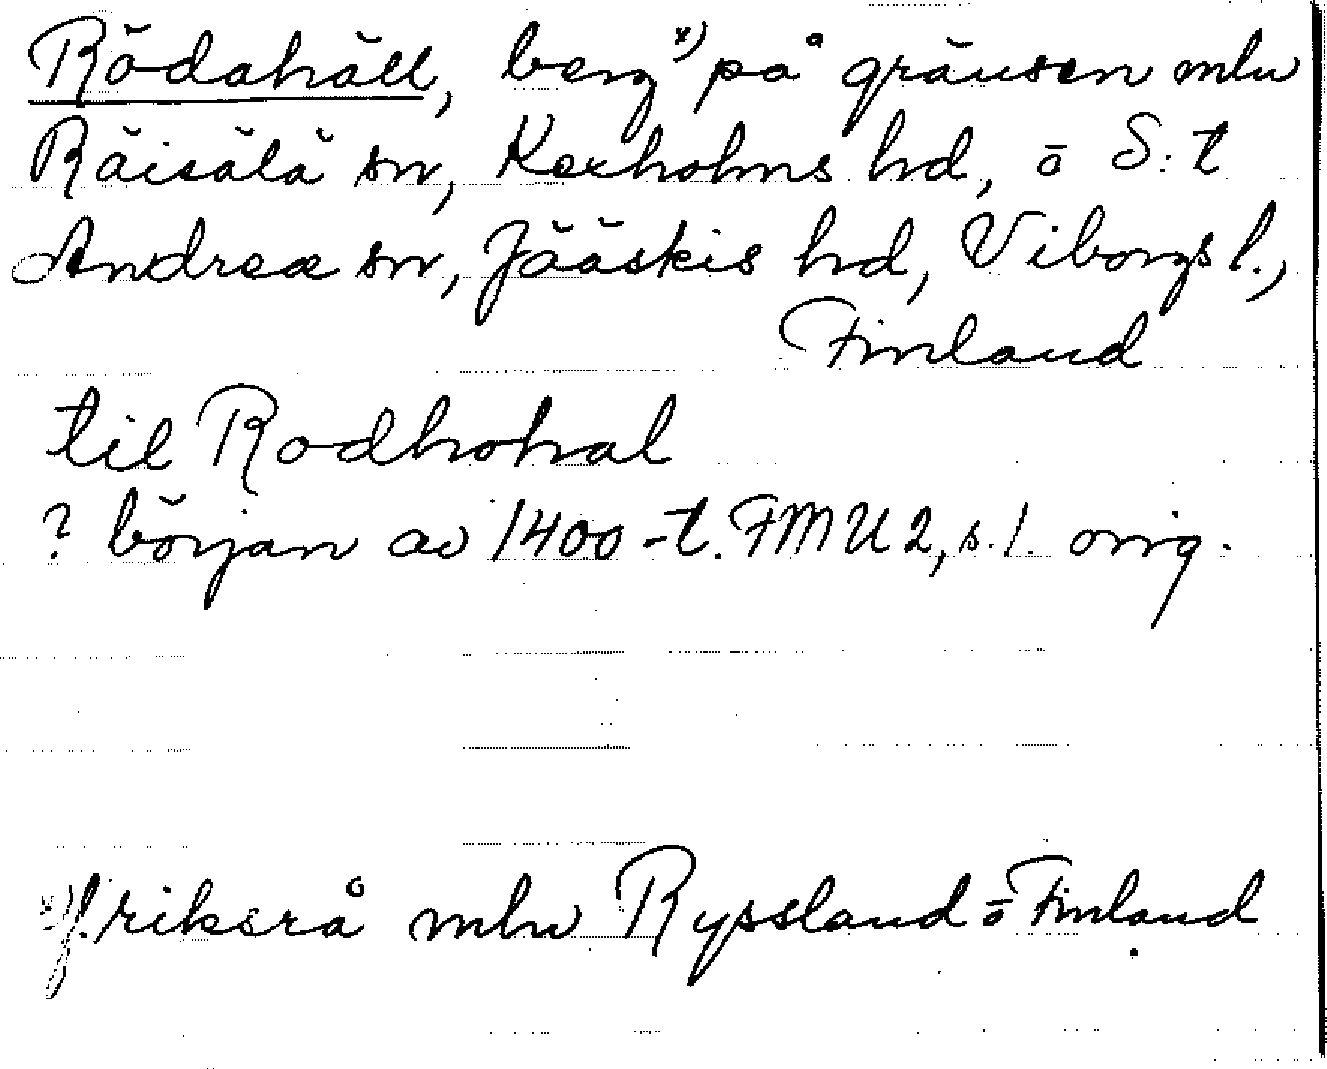 Rödahäll, berg x) på gränsen mln
Räisälä sn, Kexholms hd, o S:t
Andreæ sn, Jääskis hd, Viborgs l.,
Finland
til Rodhohal
? början av 1400-t. FMU 2, s. 1. orig.
x) f. riksrå mln Ryssland o Finland